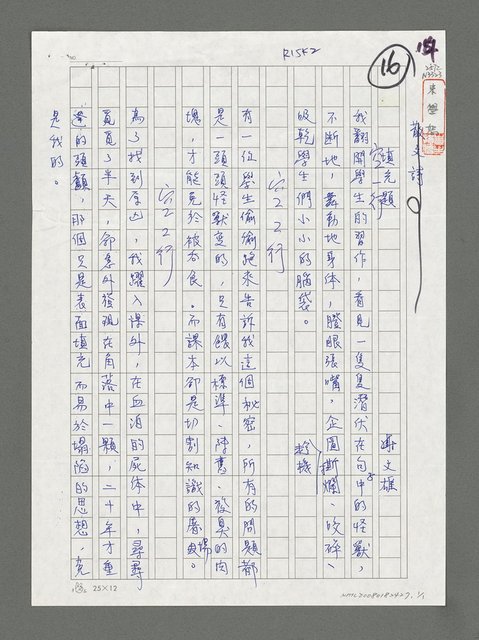 RISK2
16
154
散文詩
填充題
空一行
文雄
我翻開學生的習作，看見一隻隻潛伏在句子中的怪獸，
不斷地，舞動地身体，瞪眼張嘴，企圖撕爛、咬碎、
趁機
吸乾學生們小小的腦袋。
空22行
有一位學生偷偷跑來告訴我這個秘密，所有的問題都
是一頭頭怪獸变的，只有餵以標準、陳舊、發臭的肉
塊，才能免於被吞食。而課本卻是切割知識的屠場。
空22行
為了找到原因，我躍入課外，在血泊的屍体中，尋尋
覓覓了半天，卻意外發現在角落中一顆，二十年才重
逢的頭顱，那個只是表面填充而易於塌陷的思想，竟
是我的。
25×12